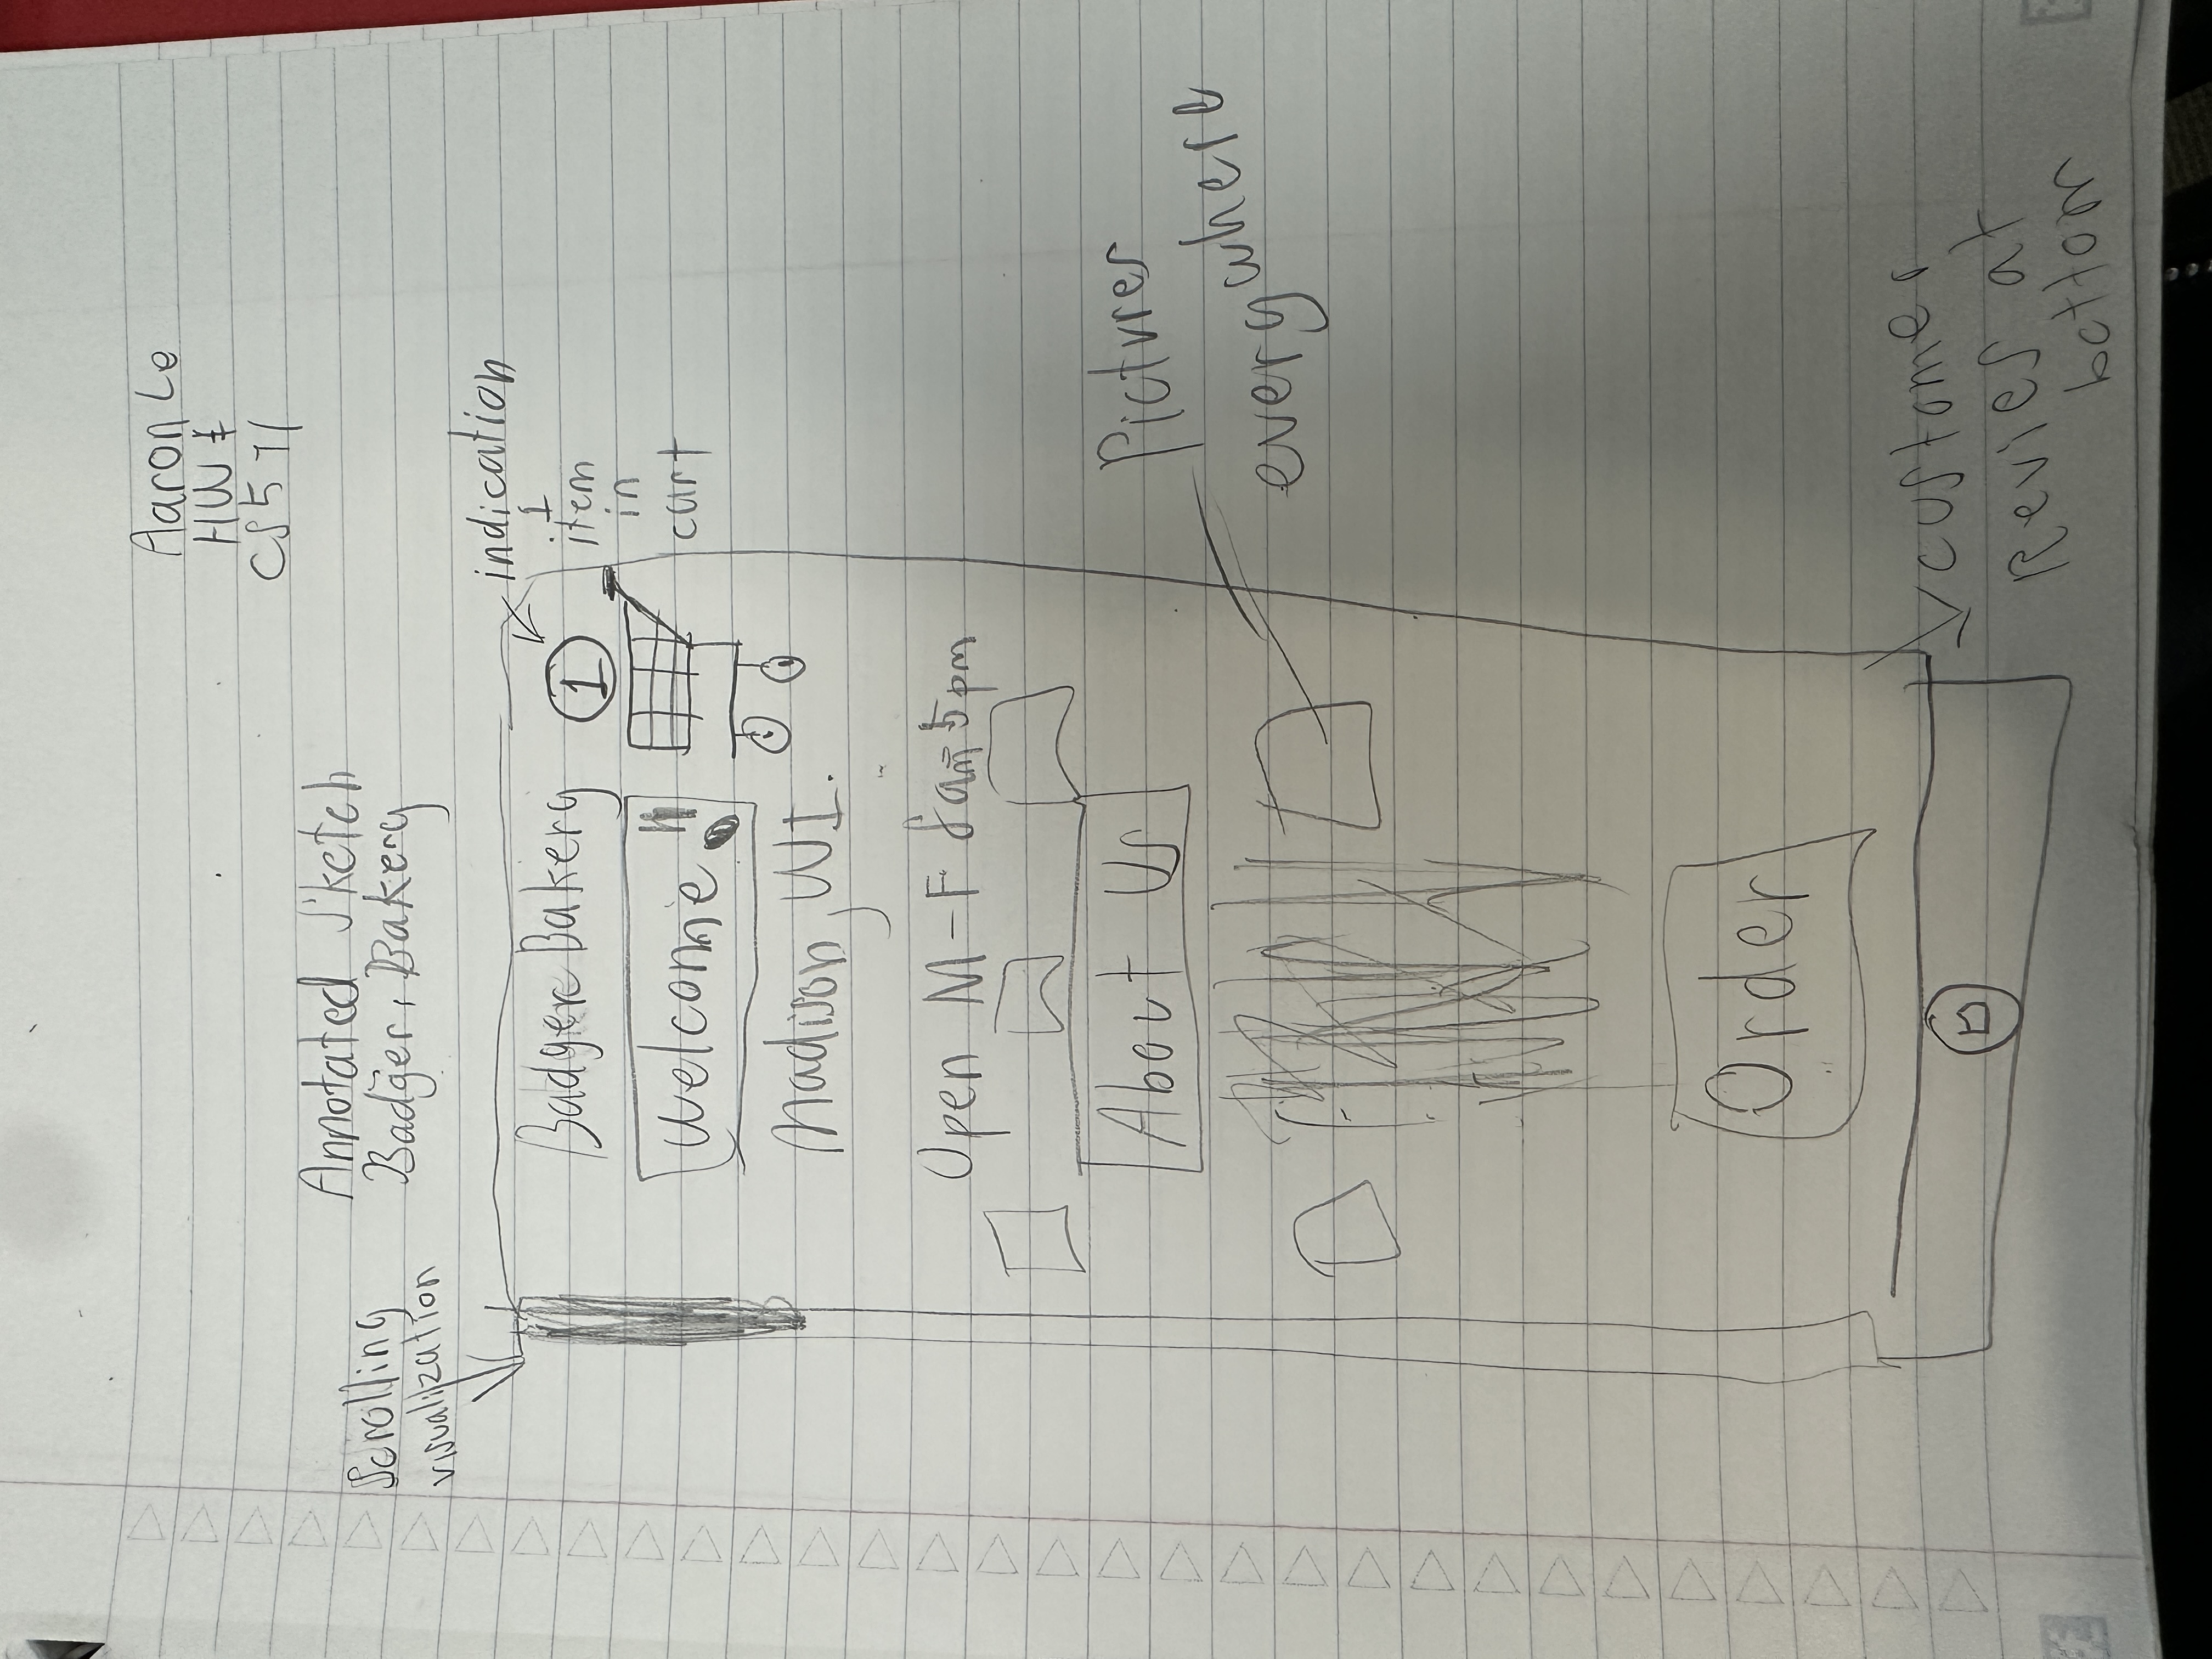 Aaron Le
HW
CS571
Annotated Sketch
Badger Bakery
Scrolling
visualization
indication
1
item
in
cart
Badger Bakery
1
Welcome!!
Madison, WI.
Open M-F 8am-5pm
About Us
Pictures
everywhere
Order
customer
Revies at
bottom